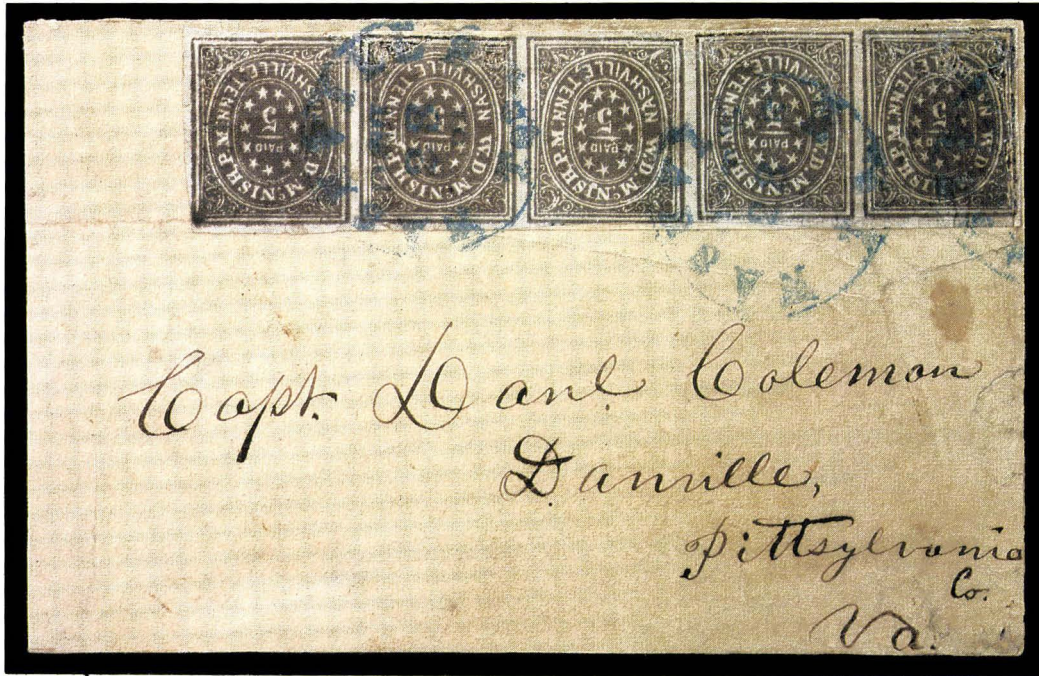 W.D. McNISH. P.M. NASHVILLE, TENN. PAID 5
W.D. McNISH. P.M. NASHVILLE, TENN. PAID 5
W.D. McNISH. P.M. NASHVILLE, TENN. PAID 5
W.D. McNISH. P.M. NASHVILLE, TENN. PAID 5
W.D. McNISH. P.M. NASHVILLE, TENN. PAID 5
Capt. Danl. Coleman
Danville,
Pittsylvania
Co.
Va.